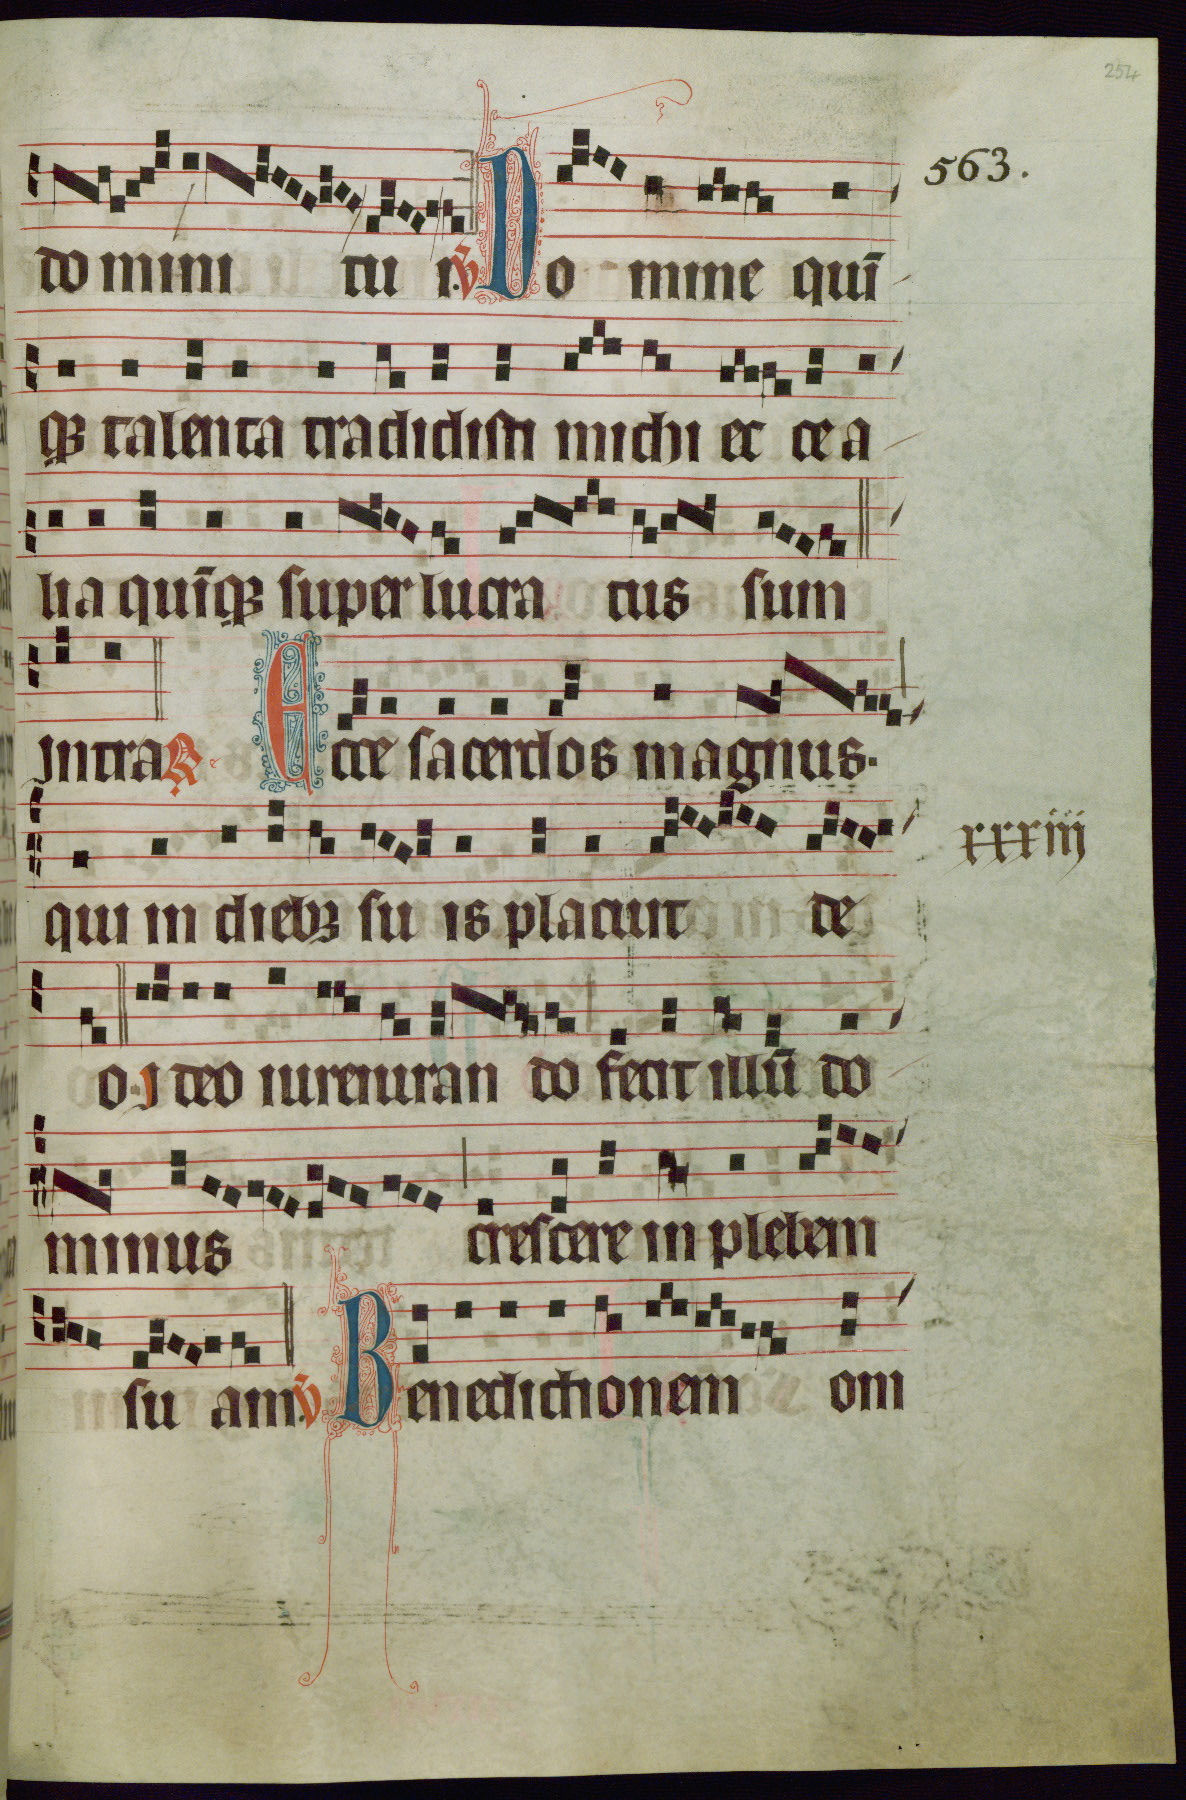 254
563.
do mini tu i. ℣ Do mine quī
qȝ talenta tradidisti michi ec ce a
lia quīqȝ super lucra tus sum
jntra ℟. Ecce sacerdos magnus.
xxxiij
qui in diebȝ su is placuit de
o. j deo iureiuran do fecit illū do
minus crescere in plebem
su am. ℣ Benedictionem om